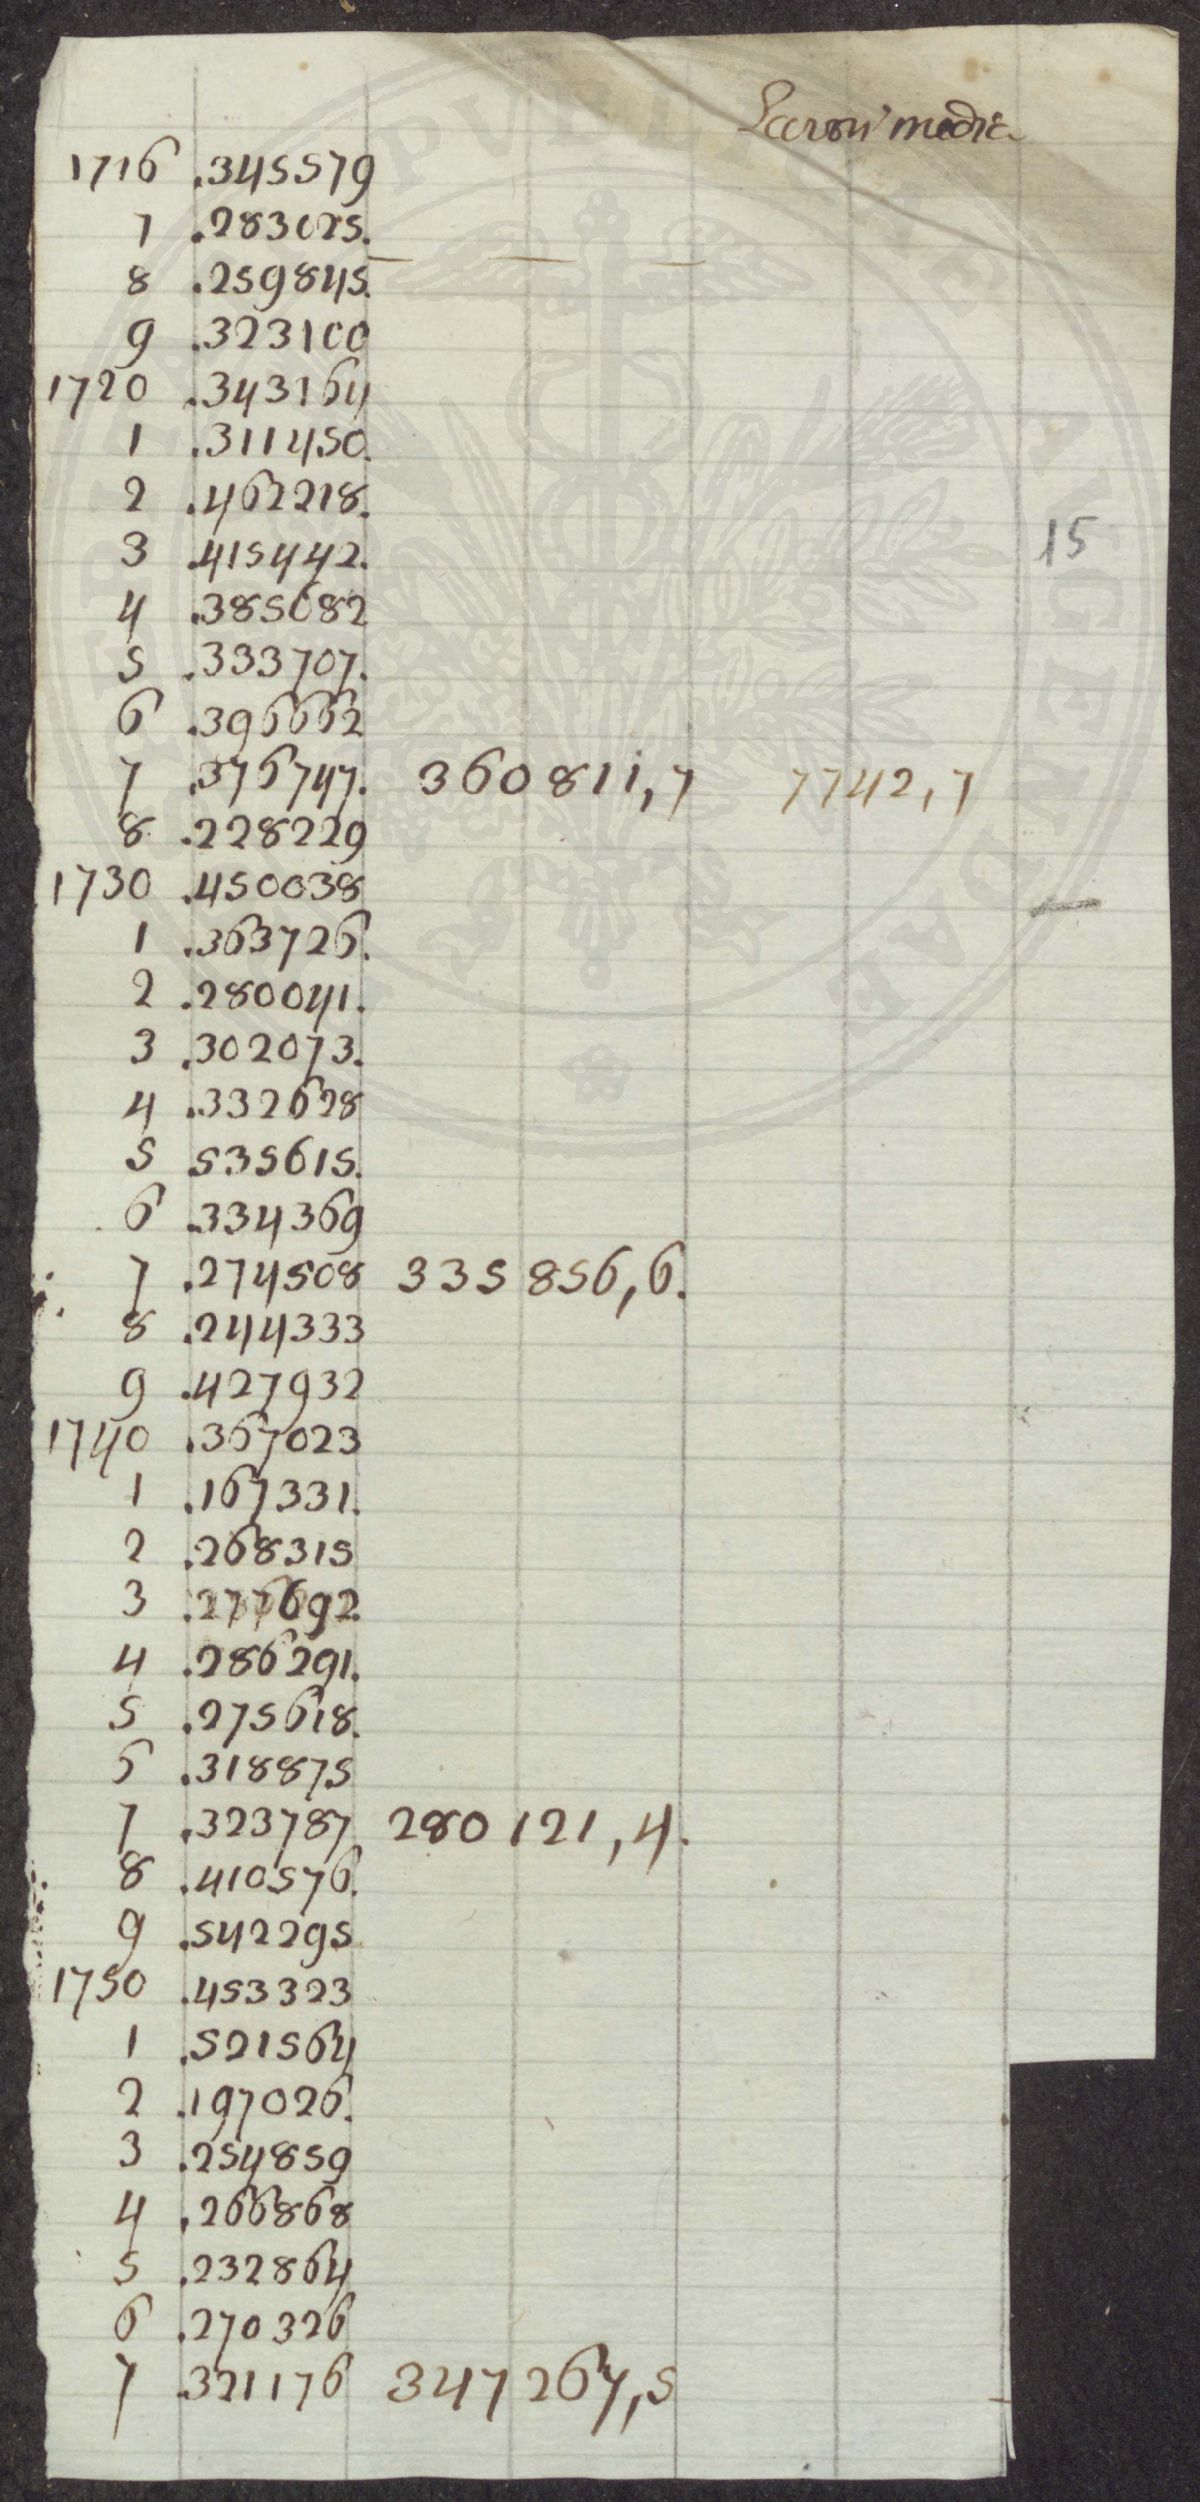 media
1716 .345579
7 .283025.
8 .259845.
9 .323100
1720 .343164
1 .311450.
2 .462218.
3 .415442.
15
4 .385682
5 .333707.
6 .396662
7 .376747. 360811,7 7742,7
8 .228229
1730 .450038
1 .363726.
2 .280041.
3 .302073.
4 .332628
5 535615.
6 .334369
7 .274508 335856,6.
8 .244333
9 .427932
1740 .367023
1 .167331.
2 .268315
3 .277692.
4 .286291.
5 .275618.
6 .318875
7 .323787 280121,4.
8 .410576.
9 .542295
1750 .453323
1 .521564
2 .197026.
3 .254859
4 .266868
5 .232864
6 .270326
7 .321176 347267,5